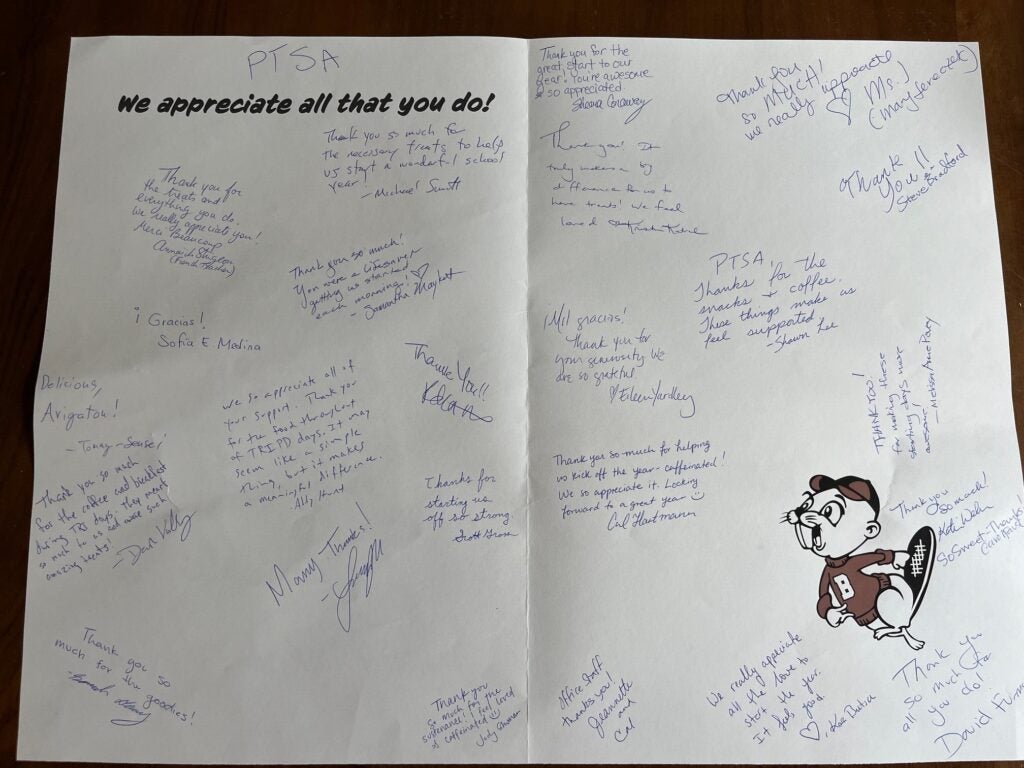 PTSA
We appreciate all that you do!
Thank you so much for
the necessary treats to help
us start a wonderful school
year!
- Michael
Thank you for
the treats and
everything you do.
We really appreciate you!
Merci Beaucoup
(French Teacher)
Thank you so much!
You were a lifesaver
getting us started
each morning! ♡
- Samantha
¡Gracias!
Sofia E. Medina
Delicious,
Arigatou!
- Tony-Sensei
We so appreciate all of
your support. Thank you
for the food throughout
of TRI PD days. It may
seem like a simple
thing, but it makes
a meaningful difference.
Thank You!!
Thank you so much
for the coffee and breakfast
during TRI days, they meant
so much to us and were such
amazing treats!
- Dan Kelly
Thanks for
starting us
off so strong.
Scott
Many Thanks!
Thank you so
much for the goodies!
Thank you
so much for the
sustenance! I feel loved
& caffeinated ☺
Judy
Thank you for the
great start to our
year! You're awesome
& so appreciated.
Thank you
so MUCH!
we really appreciate
♡ Ms.
Thank you! It
truly makes a big
difference for us to
have treats! We feel
loved
Thank
you!!
- Steve Bradford
PTSA,
Thanks for the
snacks & coffee.
These things make us
feel supported
- Shawn Lee
¡Mil gracias!
Thank you for
your generosity. We
are so grateful.
♡ Eileen Yardley
THANK YOU!
for making these
starting days more
awesome
Thank you so much for helping
us kick off the year - caffeinated!
We so appreciate it. Looking
forward to a great year ☺
Carl Hautmann
B
Thank you
so much!
So Sweet - Thanks!
Office Staff
thanks you!
Jeannette
and
Cal
We really appreciate
all the love to
start the year.
It feels good.
♡,
Thank you
so much for
all you do!
David